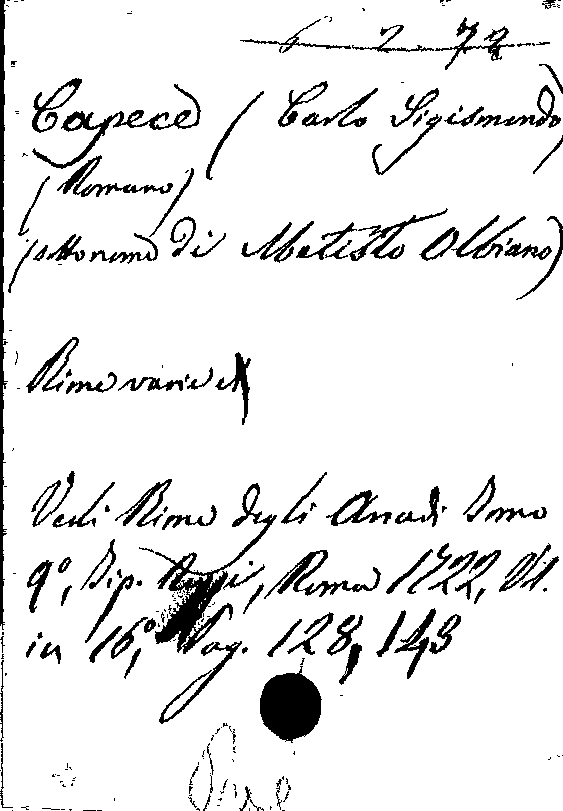 6 2 72
Capece (Carlo Sigismondo)
(Romano)
(sotto nome di Metisto Olbiano)
Rime varie
Vedi Rime degli Arcadi Tomo
9º, Tip. Rossi, Roma 1722, Vol.
in 16º, Pag. 128, 143